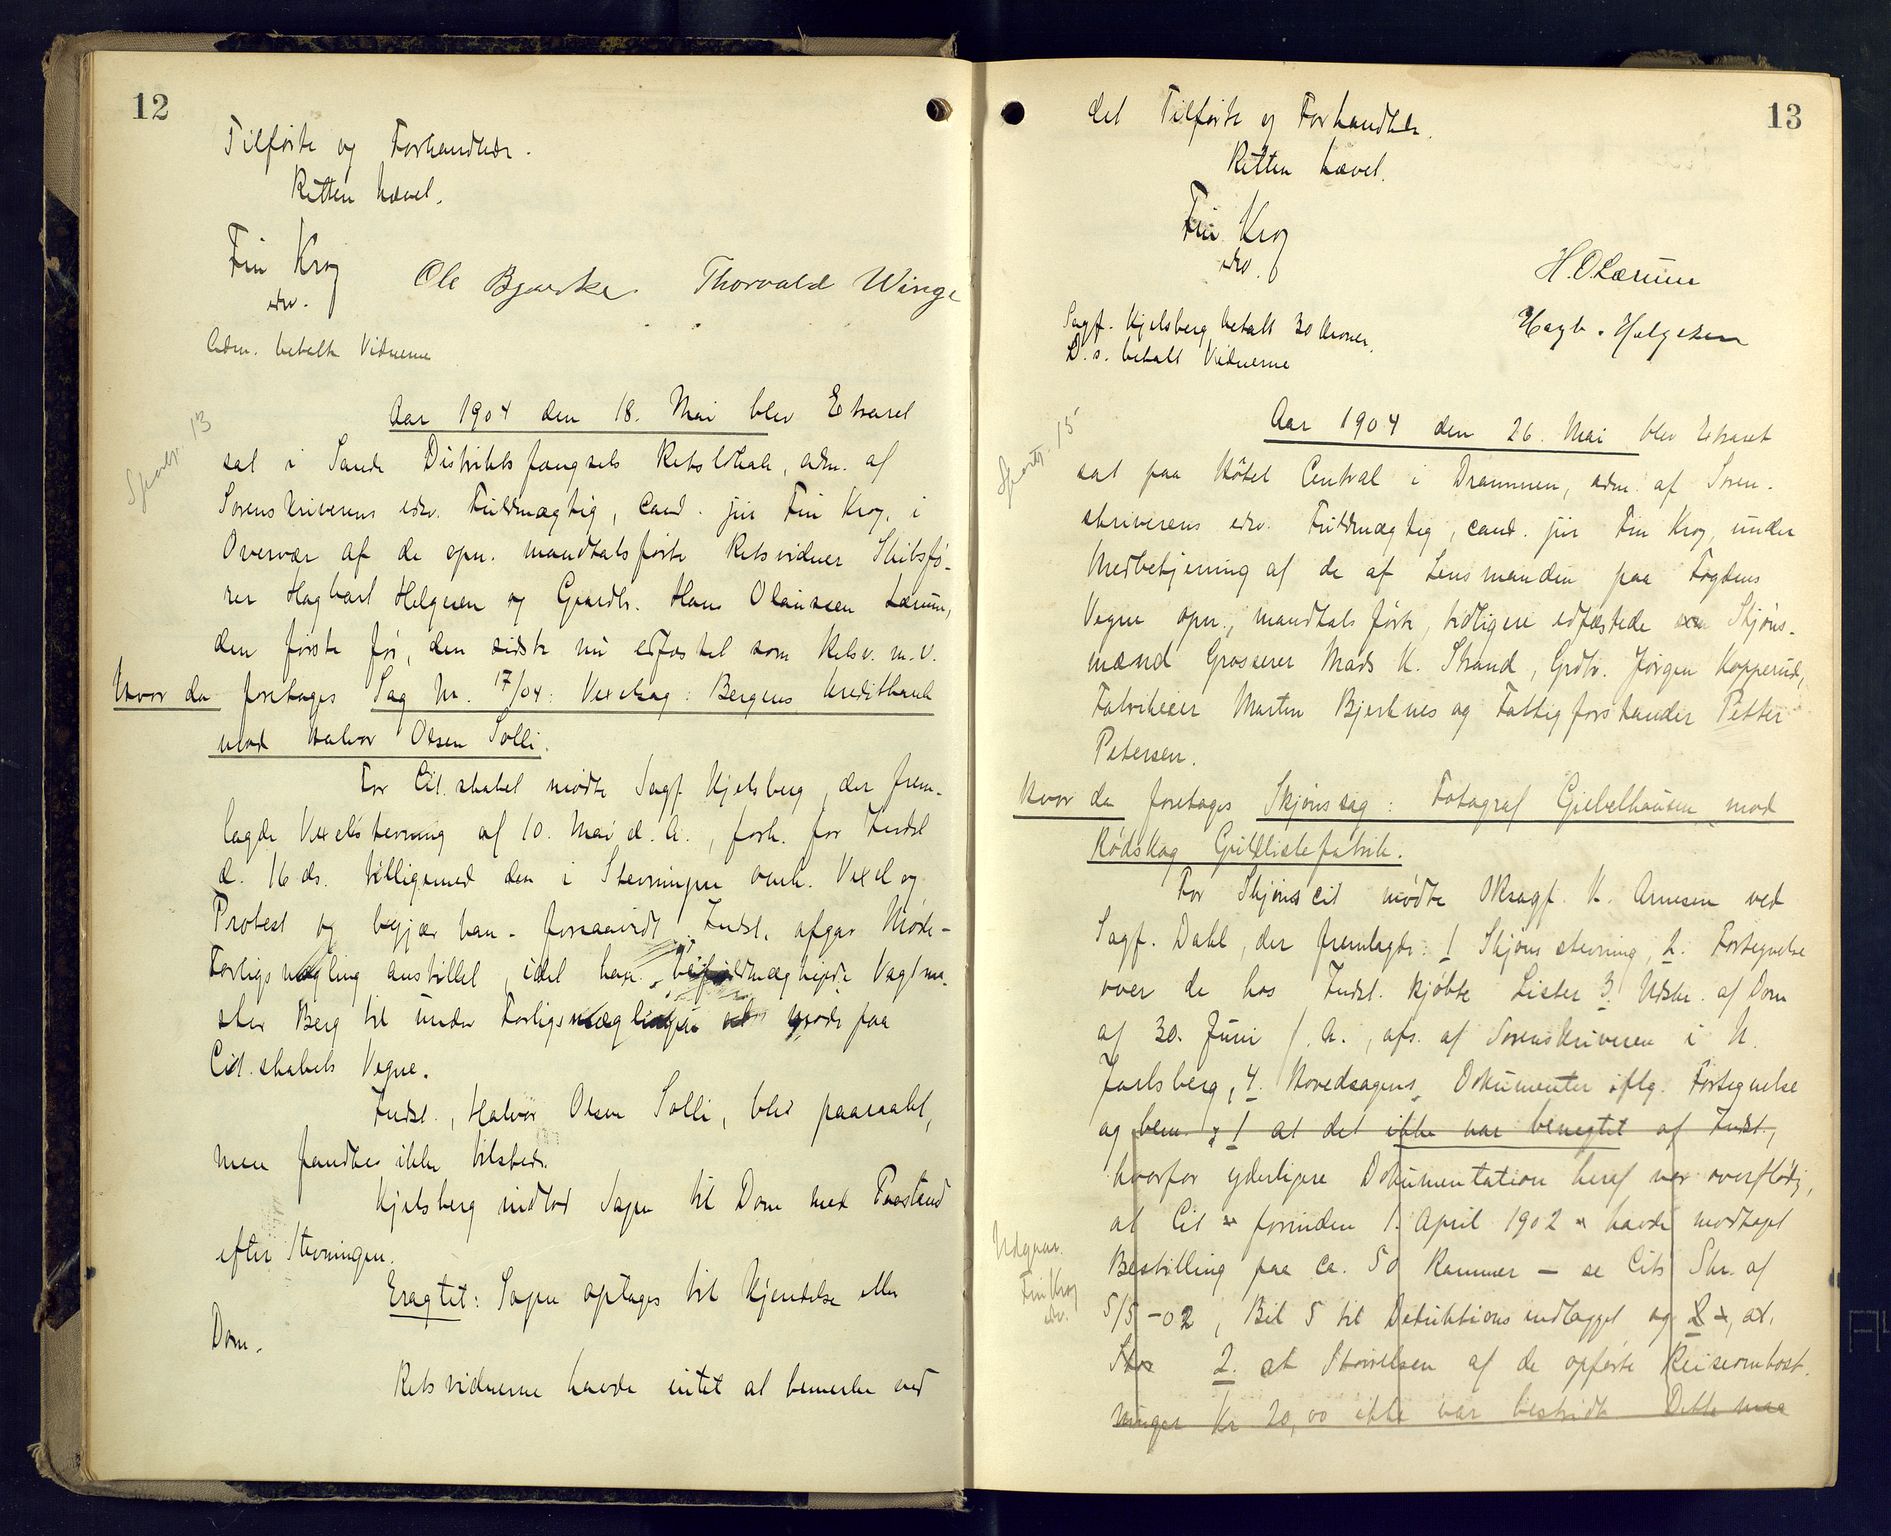 12
Tilførte og Forhandlede.
Retten hævet.
Fin Krog
edsv.
Ole Bjerke. Thorvald Winge
Adm. betalte Vidnerne
Aar 1904 den 18. Mai blev Extraret
sat i Sande Distriktsfængsels Retslokale, adm. af
Sorenskriverens edsv. Fuldmægtig, Cand. jur Fin Krog, i
Overvær af de opn. mandtalsførte Retsvidner Skibsfø-
rer Hagbart Helgesen og Gaardbr. Hans Olaussen Lærum,
den første før, den sidste nu edfæstet som Retsv. m.v.
Hvor da foretages Sag Nr. 17/04: Vexelsag: Bergens Kreditbank
mod Halvor Olsen Solli.
For Cit.skabet mødte Sagf Kjelsberg, der frem-
lagde Vexelstevning af 10. Mai d. A., fork. for Indst
d. 16 ds. tilligemed den i Stevningen omh. Vexel og
Protest og begjær han. forsaavidt Indst. afgav Møde-
Forligsmægling anstillet, idet han befuldmægtigede Vagtme-
ster Berg til under Forligsmæglingen at møde paa
Cit.skabets Vegne.
Indst., Halvor Olsen Solli, blev paaraabt,
men fandtes ikke tilstede.
Kjelsberg indlod Sagen til Dom med Paastand
efter Stevningen.
Eragtet: Sagen optages til Kjendelse eller
Dom.
Retsvidnerne havde intet at bemerke ved
13
det Tilførte og Forhandlede.
Retten hævet.
Fin Krog
edsv.
H. O Lærum
Hagb. Helgesen
Sagf. Kjelsberg betalt 30 Kroner.
D. s. betalt Vidnerne
Aar 1904 den 26. Mai blev Extraret
sat paa Hôtel Central i Drammen, adm. af Soren-
skriverens edsv. Fuldmægtig, cand. jur Fin Krog, under
Medbetjening af de af Lensmanden paa Fogdens
Vegne opn., mandtalsførte, tidligere edfæstede Skjøns-
mænd Grosserer Mads K. Strand, Grdbr. Jørgen Kopperud,
Fabrikeier Marten Bjerknes og Fattigforstander Petter
Petersen.
Hvor da foretages Skjønssag: Fotograf Giebelhausen mod
Rødskog Guldlistefabrik.
For Skjønscit mødte ORsagf. K. Arnesen ved
Sagf. Dahl, der fremlagde: 1 Skjønsstevning, 2. Fortegnelse
over de hos Indst. kjøbte Lister 3. Udskr. af Dom
af 30. Juni f. A., afs. af Sorenskriveren i N.
Jarlsberg, 4. Hovedsagens Dokumenter iflg. Fortegnelse
og bem. 1 at det ikke var benegtet af Indst.,
hvorfor yderligere Dokumentation heraf var overflødig,
at Cit forinden 1. April 1902 havde modtaget
Bestilling paa ca. 50 Rammer – se Cits Skr. af
5/5 -02, Bil 5 til Deduktionsindlægget og 2, at,
Stør 2. at Størrelsen af de opførte Reiseomkost-
ninger Kr 20,00 ikke var bestridt Dette maa
Udgaar.
Fin Krog
edsv.